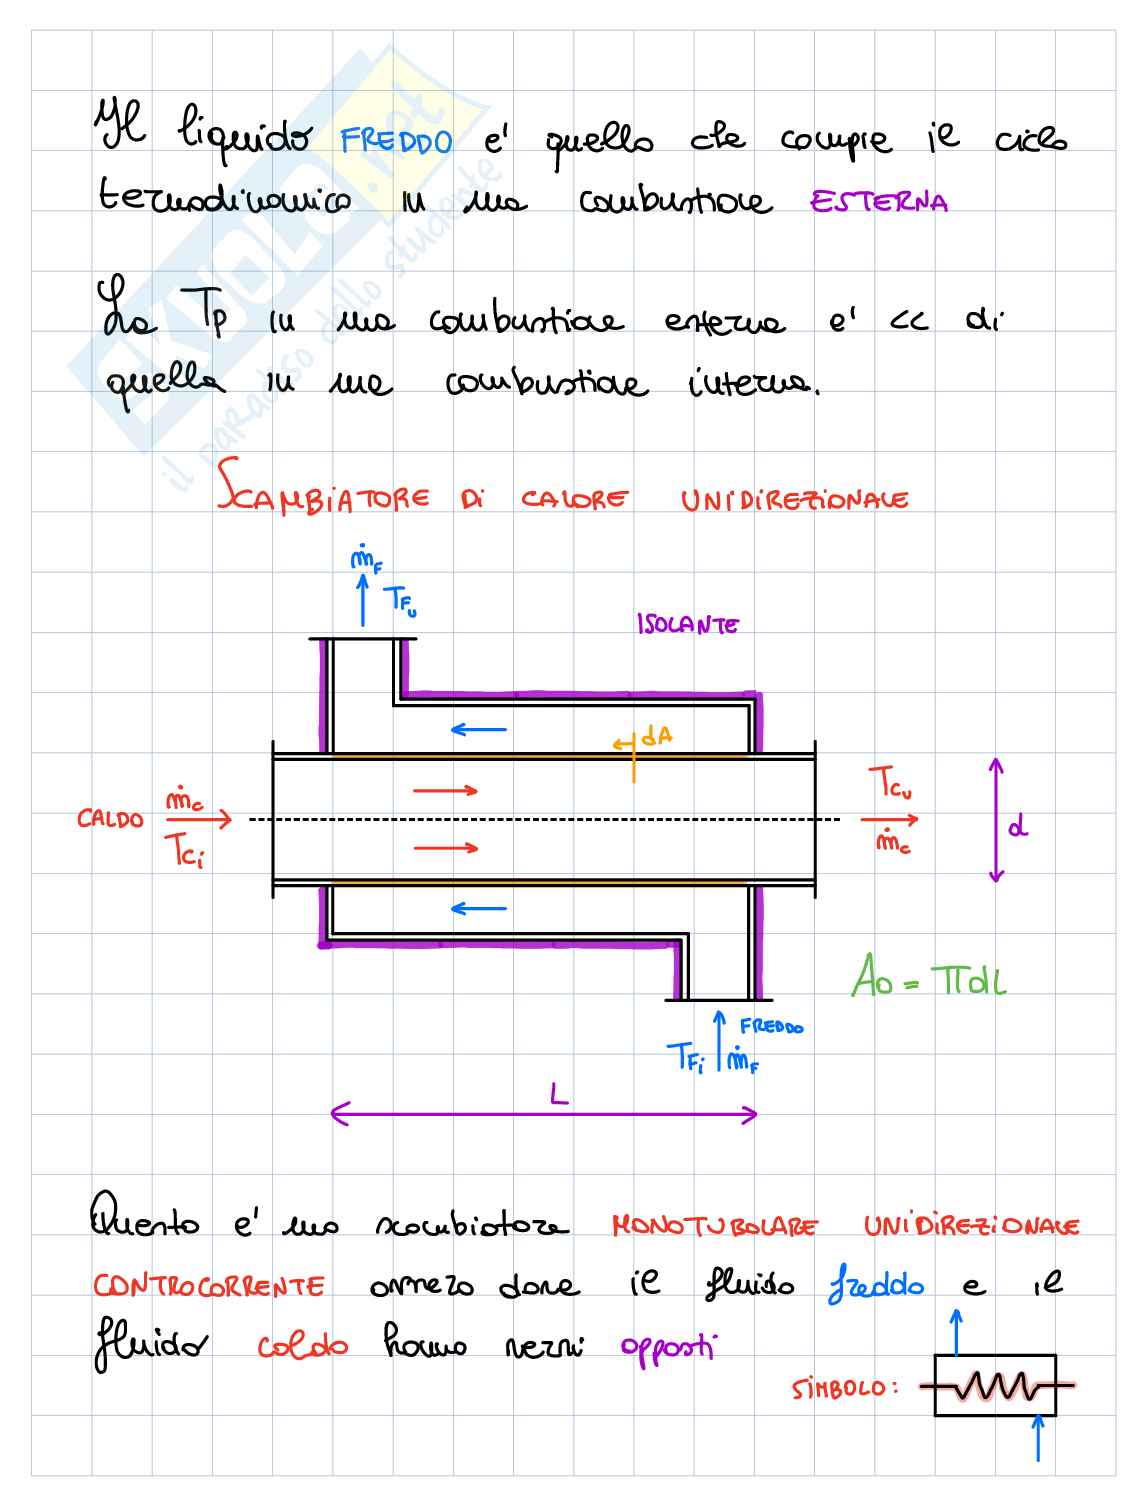 Il liquido FREDDO e' quello che compie il ciclo
termodinamico in una combustione ESTERNA
La Tp in una combustione esterna e' << di
quella in una combustione interna.
SCAMBIATORE Di CALORE UNIDIREZIONALE
ṁF
TFu
ISOLANTE
dA
CALDO
ṁc
Tci
Tcu
ṁc
d
A0 = πdL
FREDDO
TFi
ṁF
L
Questo e' uno scambiatore MONOTUBOLARE UNIDIREZIONALE
CONTROCORRENTE ovvero dove il fluido freddo e il
fluido caldo hanno versi opposti
SiMBOLO:
SKUOLA.net
il paradiso dello studente